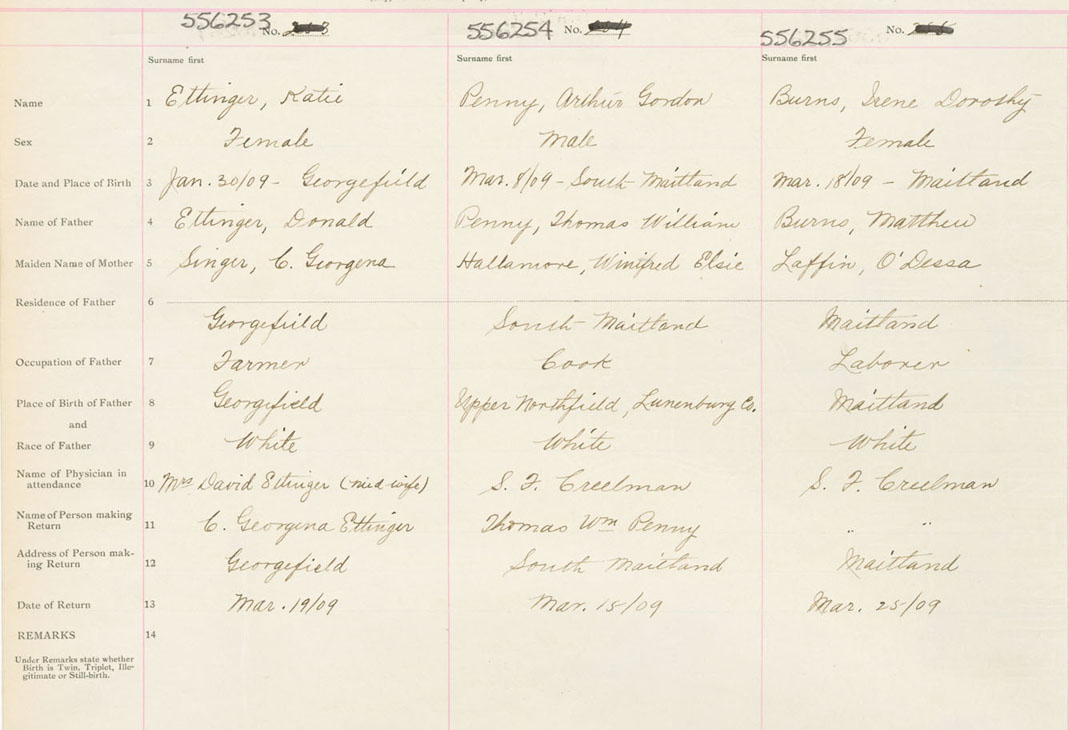 556253 No. 556254 No. 556255 No.
Surname first Surname first Surname first
Name 1 Ettinger, Katie Penny, Arthur Gordon Burns, Irene Dorothy
Sex 2 Female Male Female
Date and Place of Birth 3 Jan. 30/09 - Georgefield Mar. 8/09 - South Maitland Mar. 18/09 - Maitland
Name of Father 4 Ettinger, Donald Penny, Thomas William Burns, Matthew
Maiden Name of Mother 5 Singer, C. Georgena Hallamore, Winifred Elsie Laffin, O'Dessa
Residence of Father 6
Georgefield South Maitland Maitland
Occupation of Father 7 Farmer Cook Laborer
Place of Birth of Father 8 Georgefield Upper Northfield, Lunenburg Co. Maitland
and
Race of Father 9 White White White
Name of Physician in
attendance 10 Mrs David Ettinger (mid wife) S. F. Creelman S. F. Creelman
Name of Person making
Return 11 C. Georgena Ettinger Thomas Wm Penny " "
Address of Person mak-
ing Return 12 Georgefield South Maitland Maitland
Date of Return 13 Mar. 19/09 Mar. 15/09 Mar. 25/09
REMARKS 14
Under Remarks state whether
Birth is Twin, Triplet, Ille-
gitimate or Still-birth.